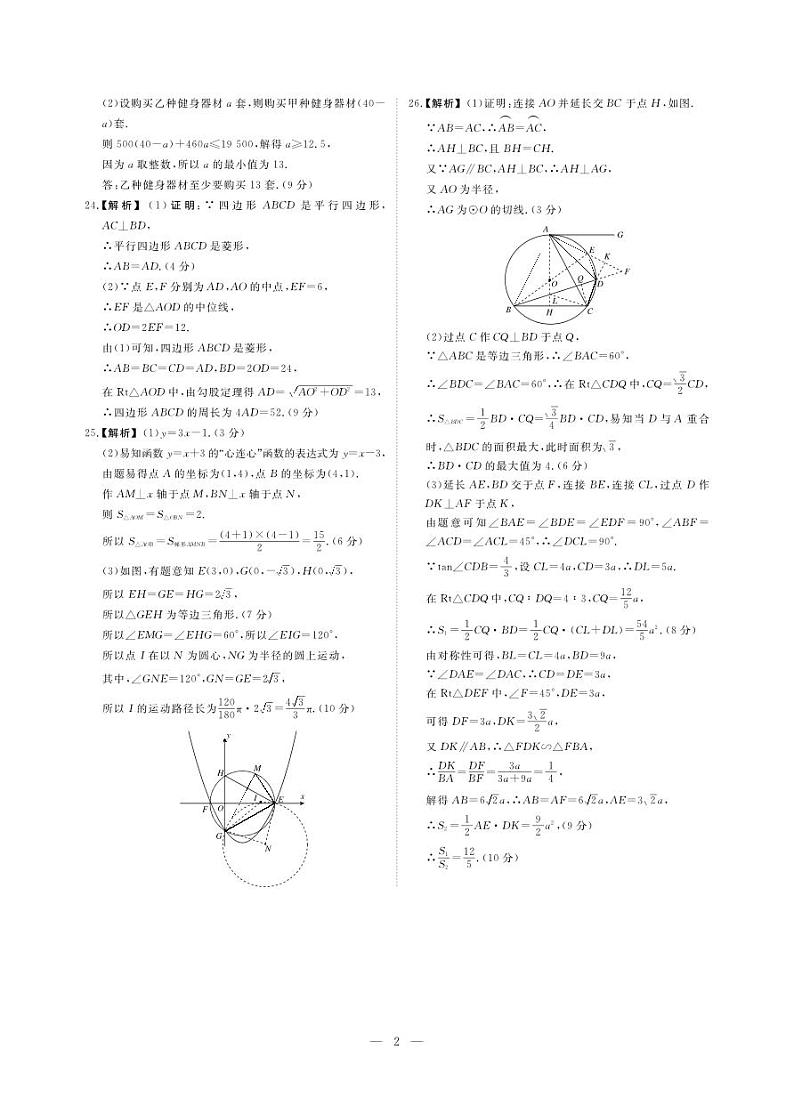 (2)设购买乙种健身器材 a 套,则购买甲种健身器材(40-
a)套.
则 500(40-a)+460a≤19 500,解得 a≥12.5,
因为 a 取整数,所以 a 的最小值为 13.
答:乙种健身器材至少要购买 13 套.(9 分)
24.【解析】(1)证明:∵四边形 ABCD 是平行四边形,
AC⊥BD,
∴平行四边形 ABCD 是菱形,
∴AB=AD.(4 分)
(2)∵点 E,F 分别为 AD,AO 的中点,EF=6,
∴EF 是△AOD 的中位线,
∴OD=2EF=12.
由(1)可知,四边形 ABCD 是菱形,
∴AB=BC=CD=AD,BD=2OD=24,
在 Rt△AOD 中,由勾股定理得 AD=√(AO²+OD²)=13,
∴四边形 ABCD 的周长为 4AD=52.(9 分)
25.【解析】(1)y=3x-1.(3 分)
(2)易知函数 y=x+3 的“心连心”函数的表达式为 y=x-3,
由题易得点 A 的坐标为(1,4),点 B 的坐标为(4,1).
作 AM⊥x 轴于点 M,BN⊥x 轴于点 N,
则 S△AOM=S△OBN=2.
所以 S△AOB=S梯形AMNB=(4+1)×(4-1)/2=15/2.(6 分)
(3)如图,有题意知 E(3,0),G(0,-√3),H(0,√3),
所以 EH=GE=HG=2√3,
所以△GEH 为等边三角形.(7 分)
所以∠EMG=∠EHG=60°,所以∠EIG=120°,
所以点 I 在以 N 为圆心,NG 为半径的圆上运动,
其中,∠GNE=120°,GN=GE=2√3,
所以 I 的运动路径长为 120/180 π·2√3=4√3/3 π.(10 分)
y
H
M
F
O
I
E
x
G
N
26.【解析】(1)证明:连接 AO 并延长交 BC 于点 H,如图.
∵AB=AC,∴⌒AB=⌒AC,
∴AH⊥BC,且 BH=CH.
又∵AG∥BC,AH⊥BC,∴AH⊥AG,
又 AO 为半径,
∴AG 为⊙O 的切线.(3 分)
A
G
E
K
F
O
Q
D
L
B
H
C
(2)过点 C 作 CQ⊥BD 于点 Q,
∵△ABC 是等边三角形,∴∠BAC=60°,
∴∠BDC=∠BAC=60°,∴在 Rt△CDQ 中,CQ=√3/2 CD,
∴S△BDC=1/2 BD·CQ=√3/4 BD·CD,易知当 D 与 A 重合
时,△BDC 的面积最大,此时面积为√3,
∴BD·CD 的最大值为 4.(6 分)
(3)延长 AE,BD 交于点 F,连接 BE,连接 CL,过点 D 作
DK⊥AF 于点 K,
由题意可知∠BAE=∠BDE=∠EDF=90°,∠ABF=
∠ACD=∠ACL=45°,∴∠DCL=90°.
∵tan∠CDB=4/3,设 CL=4a,CD=3a,∴DL=5a.
在 Rt△CDQ 中,CQ∶DQ=4∶3,CQ=12/5 a,
∴S₁=1/2 CQ·BD=1/2 CQ·(CL+DL)=54/5 a².(8 分)
由对称性可得,BL=CL=4a,BD=9a,
∵∠DAE=∠DAC,∴CD=DE=3a,
在 Rt△DEF 中,∠F=45°,DE=3a,
可得 DF=3a,DK=3√2/2 a,
又 DK∥AB,∴△FDK∽△FBA,
∴DK/BA=DF/BF=3a/(3a+9a)=1/4,
解得 AB=6√2a,∴AB=AF=6√2a,AE=3√2a,
∴S₂=1/2 AE·DK=9/2 a²,(9 分)
∴S₁/S₂=12/5.(10 分)
— 2 —